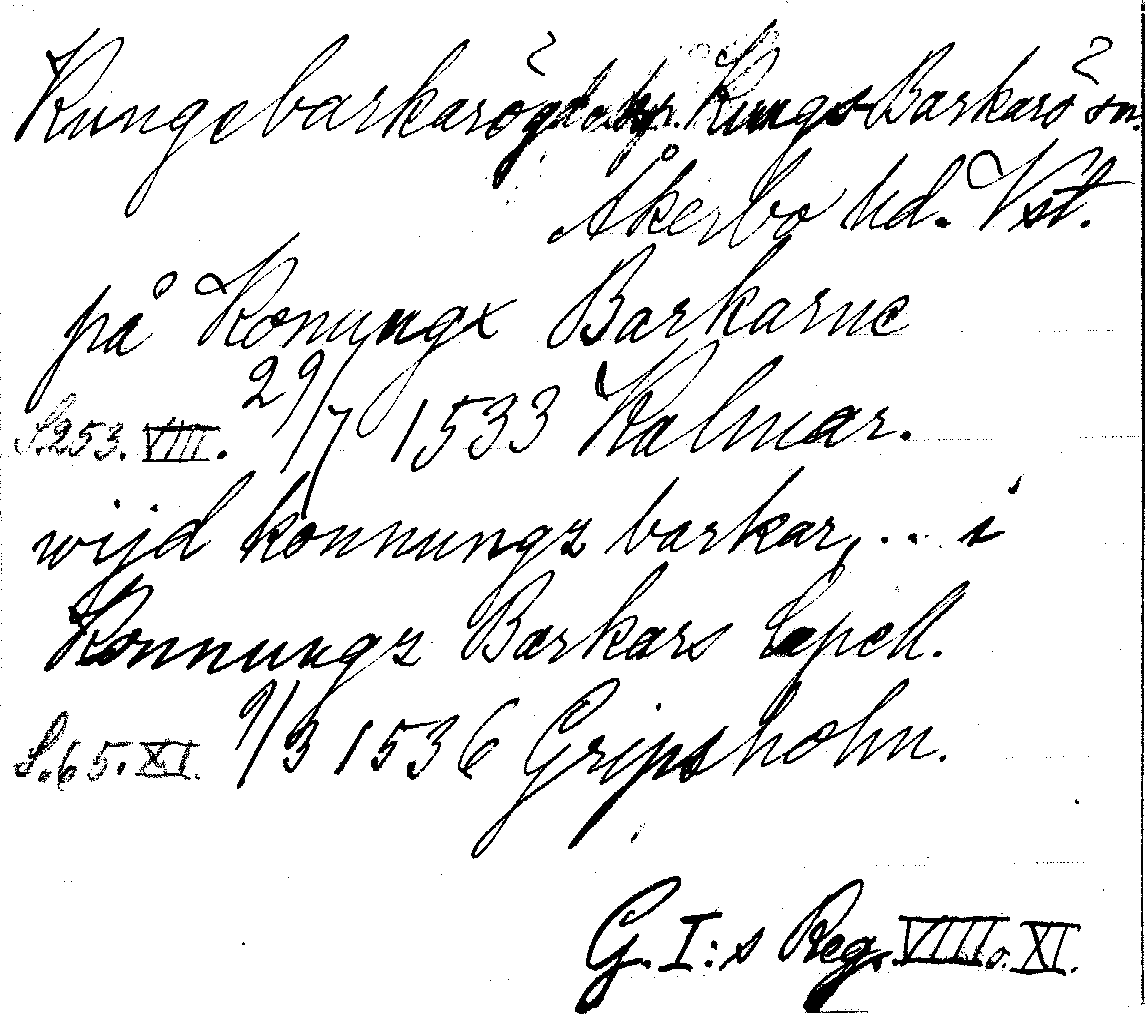 Kungsbarkarö kp. Kungs Barkarö sn.
Åkerbo hd. Vst.
på Konungx Barkarne
S. 253. VIII. 29/7 1533 Kalmar.
wijd konnungz barkar, .. i
Konnungz Barkars Capell.
S. 65. XI. 9/3 1536 Gripsholm.
G. I:s Reg. VIII o. XI.